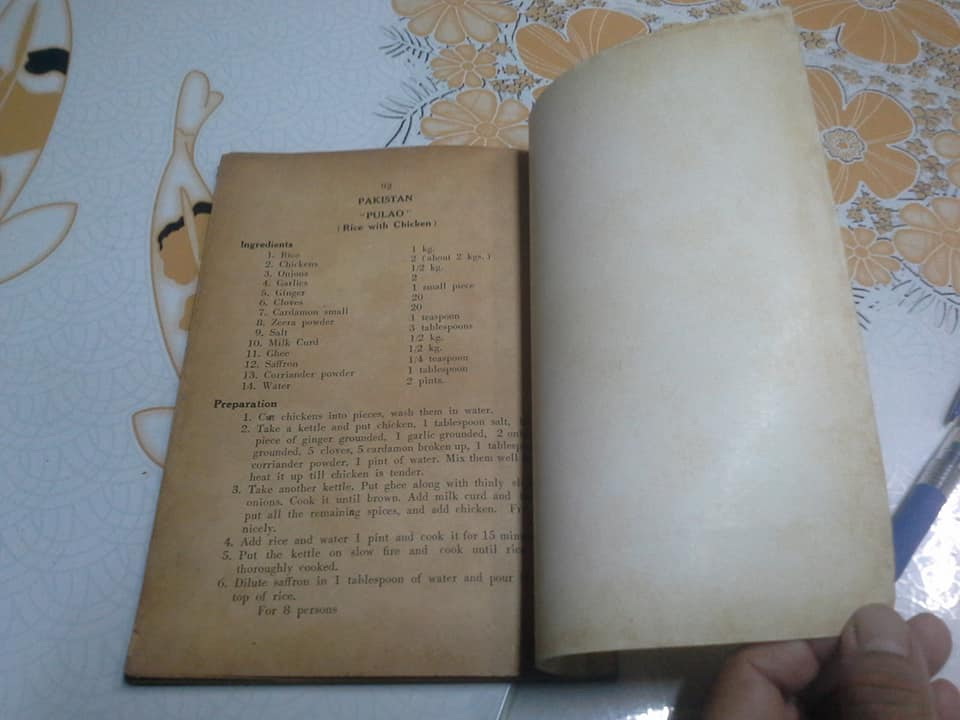 92
PAKISTAN
"PULAO"
(Rice with Chicken)
Ingredients
1. Rice 1 kg.
2. Chickens 2 (about 2 kgs.)
3. Onions 1/2 kg.
4. Garlics 2
5. Ginger 1 small piece
6. Cloves 20
7. Cardamon small 20
8. Zeera powder 1 teaspoon
9. Salt 3 tablespoons
10. Milk Curd 1/2 kg.
11. Ghee 1/2 kg.
12. Saffron 1/4 teaspoon
13. Corriander powder 1 tablespoon
14. Water 2 pints.
Preparation
1. Cut chickens into pieces, wash them in water.
2. Take a kettle and put chicken, 1 tablespoon salt,
piece of ginger grounded, 1 garlic grounded, 2
grounded, 5 cloves, 5 cardamon broken up, 1
corriander powder, 1 pint of water. Mix them well
heat it up till chicken is tender.
3. Take another kettle. Put ghee along with thinly
onions. Cook it until brown. Add milk curd and
put all the remaining spices, and add chicken.
nicely.
4. Add rice and water 1 pint and cook it for 15
5. Put the kettle on slow fire and cook until
thoroughly cooked.
6. Dilute saffron in 1 tablespoon of water and pour
top of rice.
For 8 persons